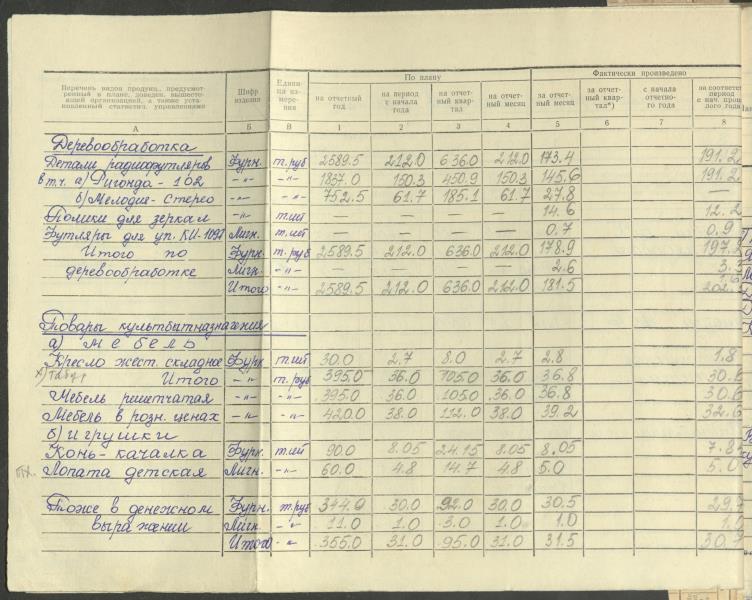 Перечень видов продук., предусмотренный в плане, доведен. вышестоящей организацией, а также установленный статистич. управлениями | Шифр изделия | Единица измерения | По плану | Фактически произведено
на отчетный год | на период с начала года | на отчетный квартал | на отчетный месяц | за отчетный месяц | за отчетный квартал*) | с начала отчетного года | за соответ период с нач. прош лого года
А | Б | В | 1 | 2 | 3 | 4 | 5 | 6 | 7 | 8
Деревообработка
Детали радиофутляров | Фурн. | т.руб | 2589.5 | 212.0 | 636.0 | 212.0 | 173.4 | 191.2
в т.ч. а) Ригонда - 102 | -"- | -"- | 1837.0 | 150.3 | 450.9 | 150.3 | 145.6 | 191.2
б) Мелодия - стерео | -"- | -"- | 752.5 | 61.7 | 185.1 | 61.7 | 27.8 | —
Полики для зеркал | -"- | т.шт | — | — | — | — | 14.6 | 12.2
Футляры для уп. КИ-1091 | Лигн. | т.шт | — | — | — | — | 0.7 | 0.9
Итого по | Фурн. | т.руб | 2589.5 | 212.0 | 636.0 | 212.0 | 178.9 | 197.
деревообработке | Лигн. | -"- | — | — | — | — | 2.6 | 3.
Итого | -"- | 2589.5 | 212.0 | 636.0 | 212.0 | 181.5
Товары культбытназначения
а) мебель
Кресло жест. складное | Фурн | т.шт | 30.0 | 2.7 | 8.0 | 2.7 | 2.8 | 1.8
Итого | -"- | т.руб | 395.0 | 36.0 | 105.0 | 36.0 | 36.8 | 30.6
Мебель решетчатая | -"- | -"- | 395.0 | 36.0 | 105.0 | 36.0 | 36.8 | 30.6
Мебель в розн. ценах | -"- | -"- | 420.0 | 38.0 | 112.0 | 38.0 | 39.2 | 32.6
б) игрушки
Конь-качалка | Фурн. | т.шт | 90.0 | 8.05 | 24.15 | 8.05 | 8.05 | 7.8
Лопата детская | Лигн. | -"- | 60.0 | 4.8 | 14.7 | 4.8 | 5.0 | 5.0
Тоже в денежном | Фурн. | т.руб | 344.0 | 30.0 | 92.0 | 30.0 | 30.5 | 29.
выражении | Лигн | -"- | 11.0 | 1.0 | 3.0 | 1.0 | 1.0 | 1.0
Итого | -"- | 355.0 | 31.0 | 95.0 | 31.0 | 31.5 | 30.